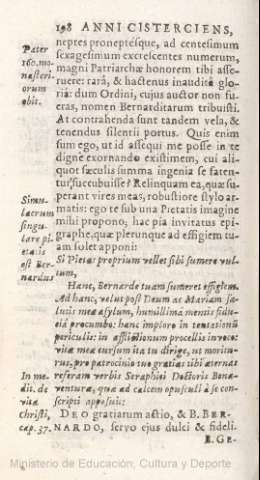 198 ANNI CISTERCIENS,
neptes proneptésque, ad centesimum
sexagesimum excrescentes numerum,
magni Patriarchæ honorem tibi asse-
ruere: rarâ, & hactenus inauditâ glo-
riâ: dum Ordini, cujus auctor non fu-
eras, nomen Bernarditarum tribuisti.
At contrahenda sunt tandem vela, &
tenendus silentii portus. Quis enim
sum ego, ut id assequi me posse in te
digne exornando existimem, cui ali-
quot sæculis summa ingenia se faten-
tur succubuisse? Relinquam ea, quæ su-
perant vires meas, robustiore stylo ar-
matis: ego te sub una Pietatis imagine
mihi propono, hac pia invitatus epi-
graphe, quæ plerunque ad effigiem tu-
am solet apponi:
Si Pietas proprium vellet sibi sumere vul-
tum,
Hanc, Bernarde tuam sumeret effigiem.
Ad hanc, velut post Deum ac Mariam sa-
lutis meæ asylum, humillimâ mentis fidu-
ciâ procumbo: hanc imploro in tentationū
periculis: in afflictionum procellis invoco:
vitæ meæ cursum ita tu dirige, ut moritu-
rus, pro patrocinio tuo gratias tibi æternū
referam verbis Seraphici Doctoris Bona-
ventura, quæ ad calcem opusculi à se con-
scripti apposuit:
DEO gratiarum actio, & B. BER-
NARDO, servo ejus dulci & fideli.
E. GE-
Pater
160. mo-
nasteri-
orum
obit.
Simu-
lacrum
singu-
lare pi-
etatis
est Ber-
nardus
In me-
dit. de
vita
Christi,
cap. 37.
Ministerio de Educación, Cultura y Deporte